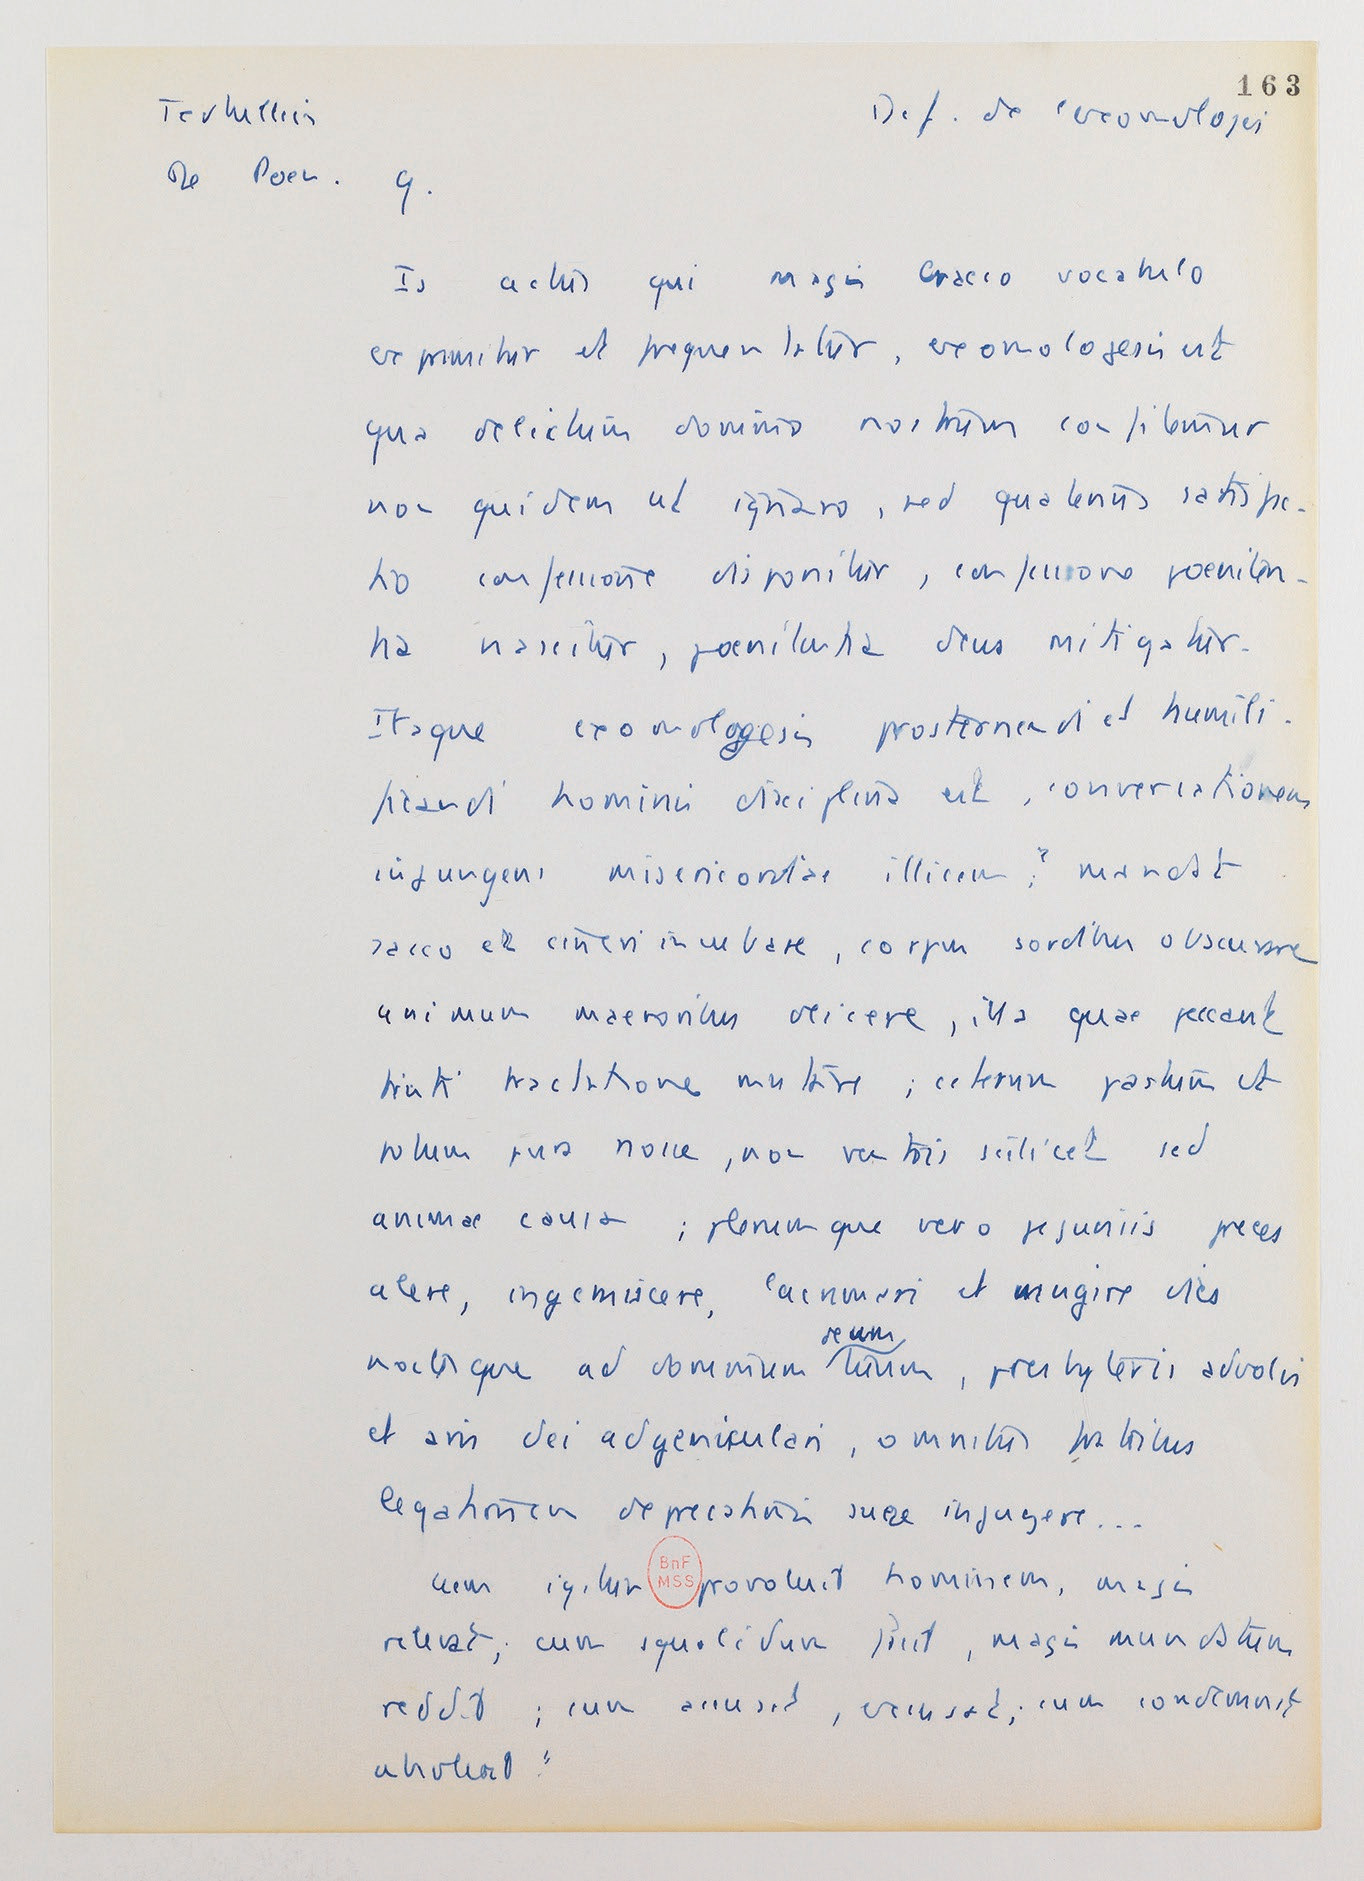 163
Tertullien
Def. de l'exomologesis
De Poen. 9.
Is actus qui magis Graeco vocabulo
exprimitur et frequentatur, exomologesis est
qua delictum domino nostrum confitemur
non quidem ut ignaro, sed quatenus satisfac-
tio confessione disponitur, confessione poeniten-
tia nascitur, poenitentia deus mitigatur.
Itaque exomologesis prosternendi et humili-
ficandi hominis disciplina est, conversationem
injungens misericordiae illicem; " mandat
sacco et cineri incubare, corpus sordibus obscurare
animum maeroribus deicere, illa quae peccant
tristi tractatione mutare ; ceterum pastum et
potum pura nosse, non ventris scilicet sed
animae causa ; plerumque vero jejuniis preces
alere, ingemiscere, lacrimari et mugire dies
noctesque ad dominum tuum, presbyteris advolvi
deum
et aris dei adgeniculari, omnibus fratribus
legationem deprecationis suae injugere...
cum igitur provolvit hominem, magis
relevat; cum squalidum facit, magis mundatum
reddit ; cum accusat, excusat; cum condemnat
absolvit"
BnF
MSS